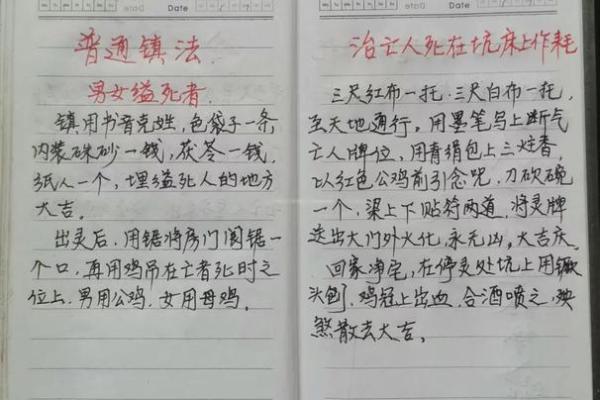 Date
普通镇法
男女缢死者
镇用书音克姓，色袋子一条，
内装硃砂一钱，茯苓一钱，
纸人一个，埋缢死人的地方
大吉。
出灵后，用锯将房门阁锯一
个口，再用鸡吊在亡者死时之
位上，男用公鸡，女用母鸡。
Date
治亡人死在坑床上作耗
三尺红布一托，三尺白布一托，
至天地通行，用墨笔写上断气
亡人牌位，用青绢包上三炷香，
以红色公鸡前引念咒，刀砍碗
一个，梁上下贴符两道，将灵牌
送出大门外火化，永无凶。大吉庆。
回家净宅，在停灵处坑上用镢
头刨，鸡冠上出血，合酒喷之，殃
煞散去大吉。